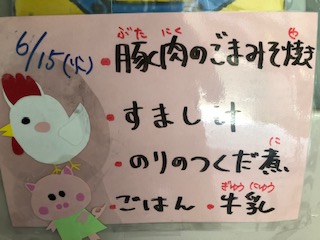 6/15(火)
・豚肉のごまみそ焼き
ぶた にく や
・すまし汁
・のりのつくだ煮
に
・ごはん ・牛乳
ぎゅうにゅう